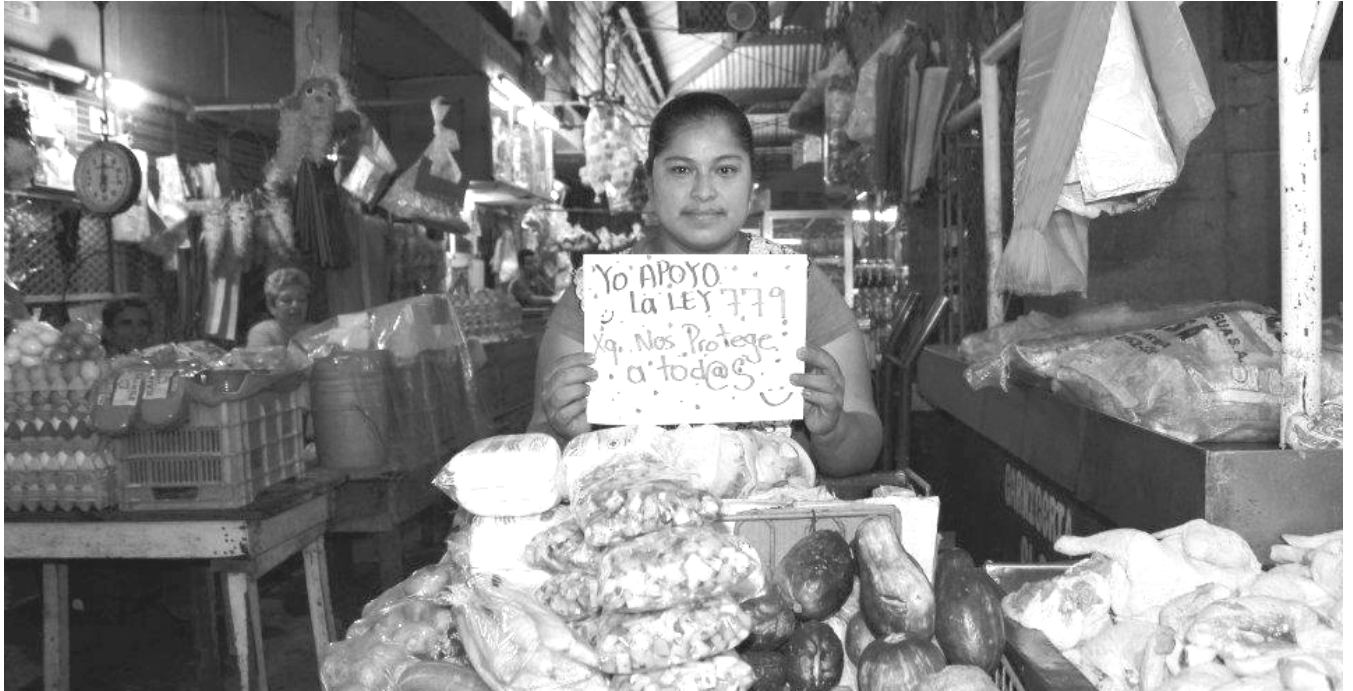 Yo APOYO
La LEY 779
Xq. Nos Protege
a tod@s
GUA S.A.